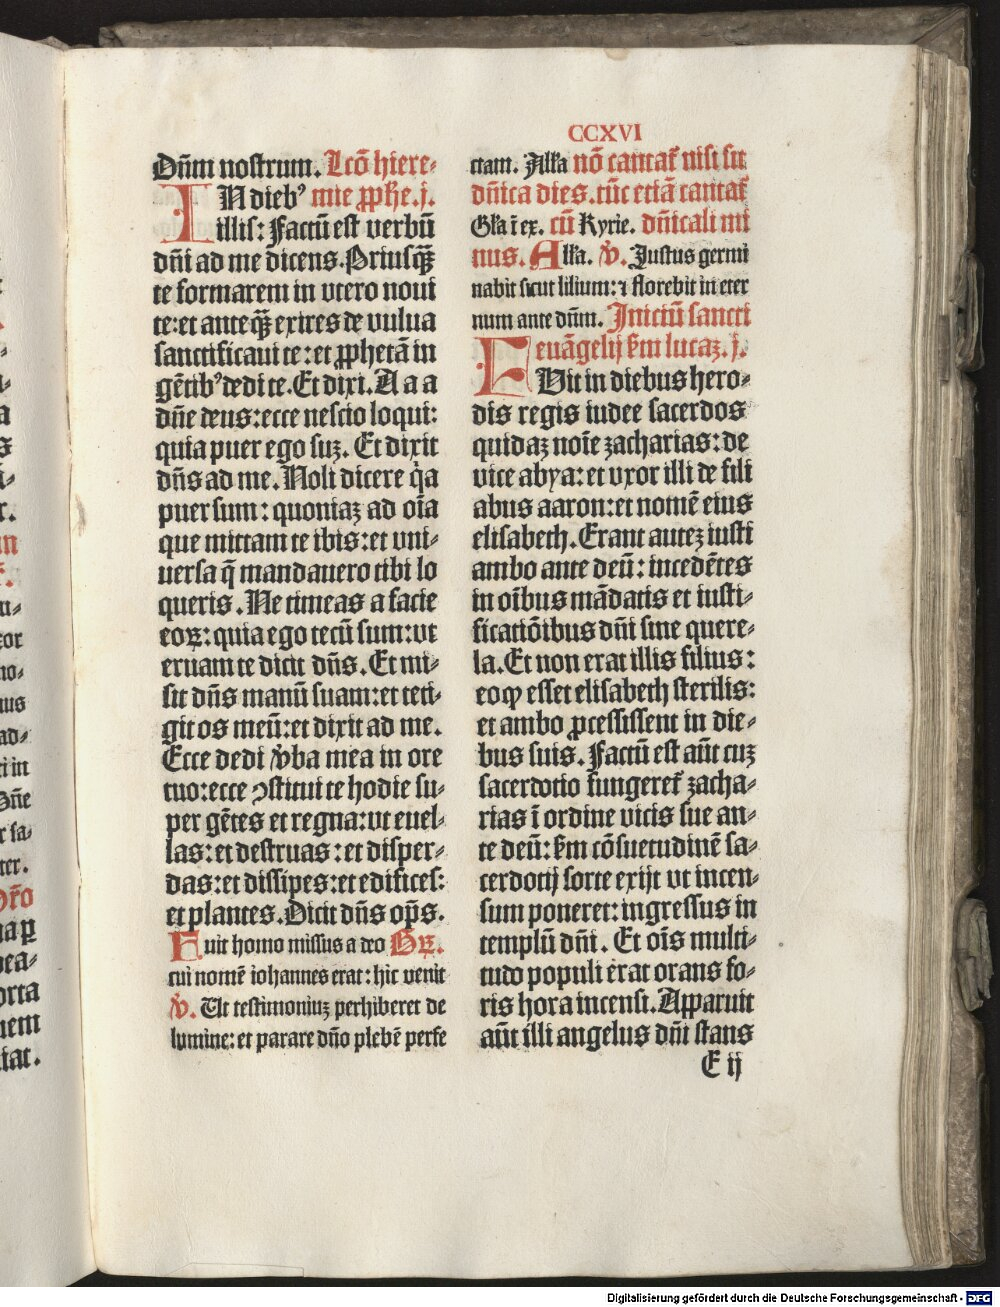 CCXVI
Dn̄m nostrum. Lcō hiere-
IN dieb⁹ mie ꝓphe. j.
illis: Factū est verbū
dn̄i ad me dicens. Priusꝙ̄
te formarem in vtero noui
te: et anteꝙ̄ exires de vulua
sanctificaui te: et ꝓphetā in
gētib⁹ dedi te. Et dixi. A a a
dn̄e deus: ecce nescio loqui:
quia puer ego suꝫ. Et dixit
dn̄s ad me. Noli dicere qͥa
puer sum: quoniaꝫ ad oīa
que mittam te ibis: et vni-
uersa q̄ mandauero tibi lo
queris. Ne timeas a facie
eoꝝ: quia ego tecū sum: vt
eruam te dicit dn̄s. Et mi-
sit dn̄s manū suam: et teti-
git os meū: et dixit ad me.
Ecce dedi v̾ba mea in ore
tuo: ecce ꝯstitui te hodie su-
per gētes et regna: vt euel-
las: et destruas: et disper-
das: et dissipes: et edifices:
et plantes. Dicit dn̄s op̄s.
Fuit homo missus a deo Gꝝ.
cui nomē iohannes erat: hic venit
V̾. Ut testimoniuꝫ perhiberet de
lumine: et parare dn̄o plebē perfe
ctam. Alla nō cantat᷑ nisi sit
dn̄ica dies. tūc etiā cantat᷑
Gl̄a ī ex. cū Kyrie. dn̄icali mi
nus. Alla. V̾. Justus germi
nabit sicut lilium: ⁊ florebit in eter
num ante dn̄m. Iniciū sancti
euāgelij ẜm lucaꝫ. j.
FUit in diebus hero-
dis regis iudee sacerdos
quidaꝫ noīe zacharias: de
vice abya: et vxor illi de fili
abus aaron: et nomē eius
elisabeth. Erant auteꝫ iusti
ambo ante deū: incedētes
in oībus mādatis et iusti-
ficatiōibus dn̄i sine quere-
la. Et non erat illis filius:
eo ꝙ esset elisabeth sterilis:
et ambo ꝓcessissent in die-
bus suis. Factū est aūt cuꝫ
sacerdotio fungeret᷑ zacha-
rias ī ordine vicis sue an-
te deū: ẜm cōsuetudinē sa-
cerdotij sorte exijt vt incen-
sum poneret: ingressus in
templū dn̄i. Et oīs multi-
tudo populi erat orans fo-
ris hora incensi. Apparuit
aūt illi angelus dn̄i stans
E ij
Digitalisierung gefördert durch die Deutsche Forschungsgemeinschaft - DFG